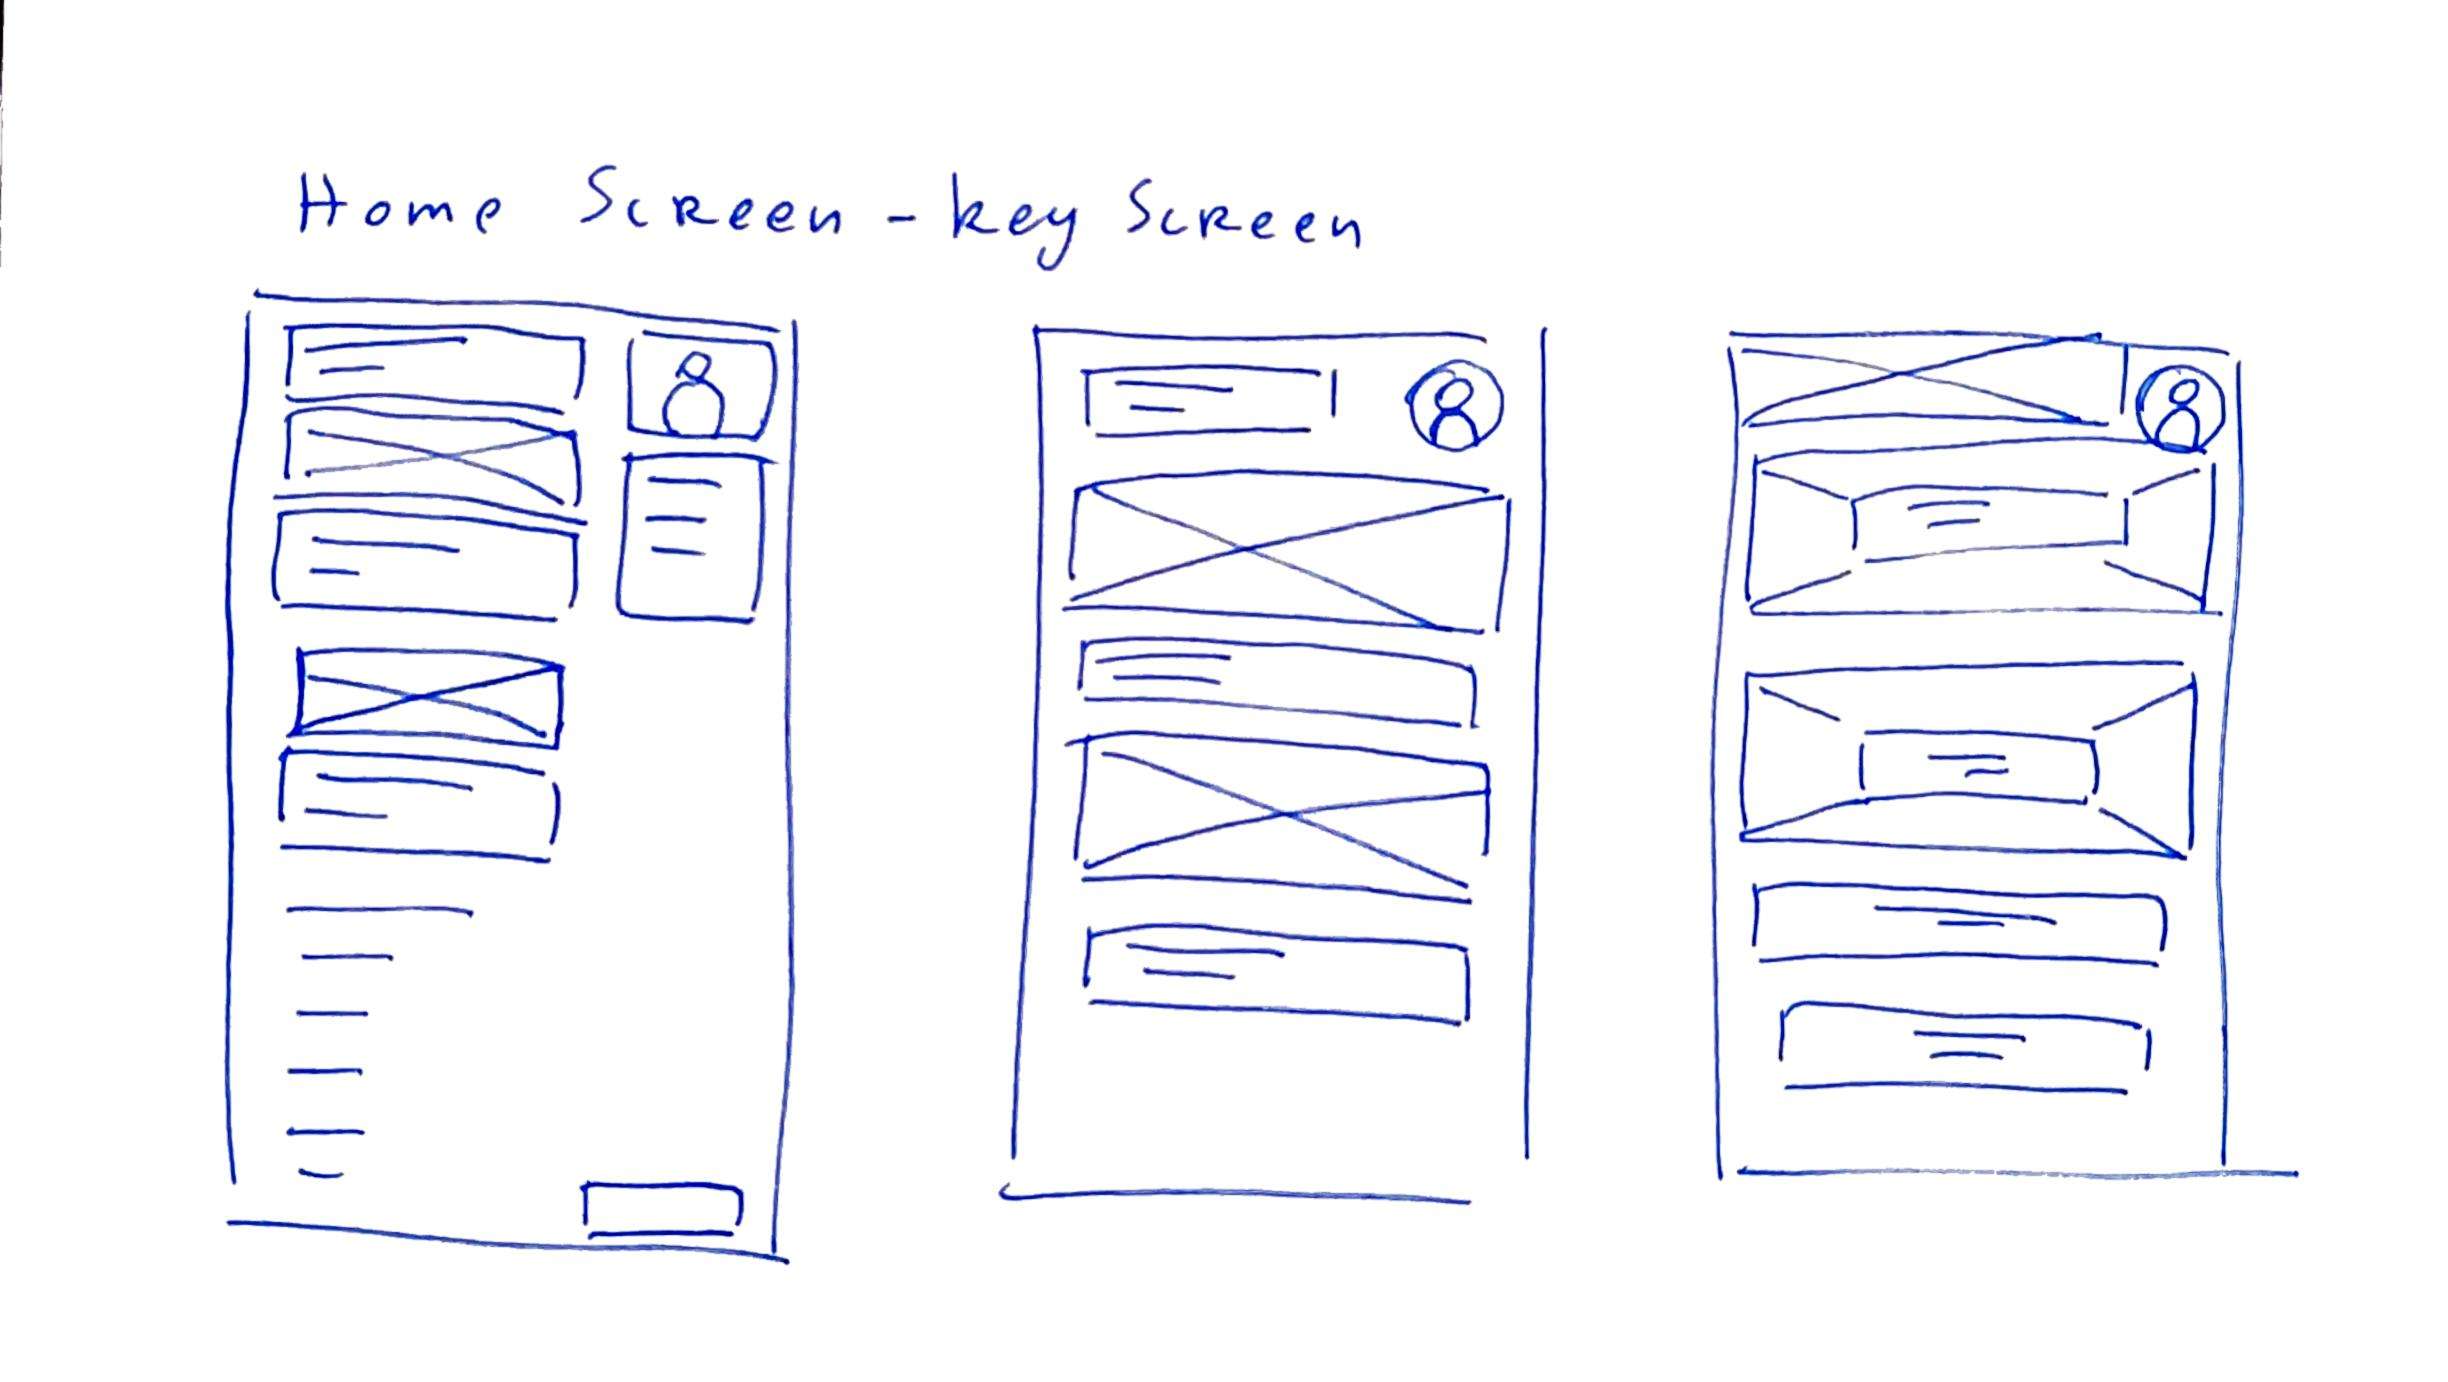 Home Screen - key Screen